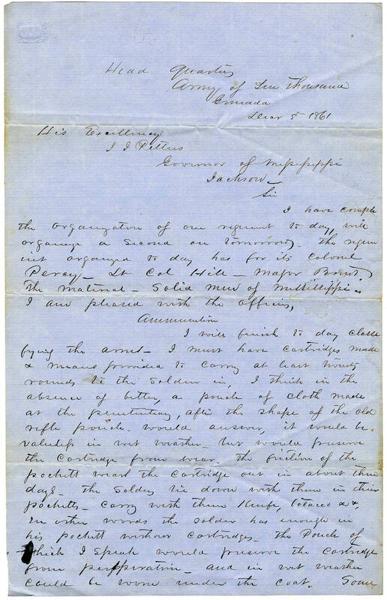 Head Quarters
Army of Ten Thousand
Grenada
Decr 5 1861
His Excellency
J J Pettus
Governor of Mississippi
Jackson
Sir
I have complt
the organization of one regiment to day, will
organize a second on tomorrow. The regim
ent organized to day has for its Colonel
Percy - Lt Col Hill - Major
The material - Solid men of Mississippi -
I am pleased with the officers,
Ammunition
I will finish to day classi
fying the arms - I must have cartridges made
& means provided to carry at least twenty
rounds to the Soldier in, I think in the
absence of better, a pouch of cloth made
at the penitentiary, after the shape of the old
rifle pouch would answer, it would be
valueless in wet weather but would preserve
the Cartridge from wear, the friction of the
pockett wears the cartridge out in about three
days - the Soldiers lie down with them in their
pocketts - carry with them Knife, tobacco &c,
in other words the soldier has enough in
his pockett without cartridges. The pouch of
which I speak would preserve the cartridge
from perspiration - and in wet weather
could be worn under the coat. Some